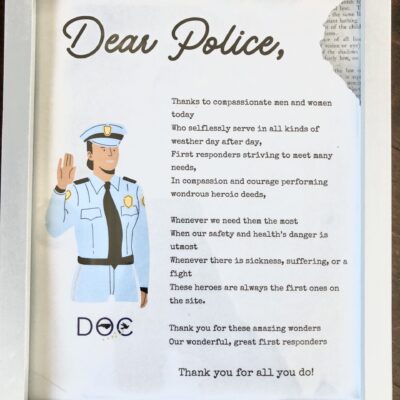 Dear Police,
Thanks to compassionate men and women
today
Who selflessly serve in all kinds of
weather day after day,
First responders striving to meet many
needs,
In compassion and courage performing
wondrous heroic deeds,
Whenever we need them the most
When our safety and health's danger is
utmost
Whenever there is sickness, suffering, or a
fight
These heroes are always the first ones on
the site.
Thank you for these amazing wonders
Our wonderful, great first responders
Thank you for all you do!
DOC